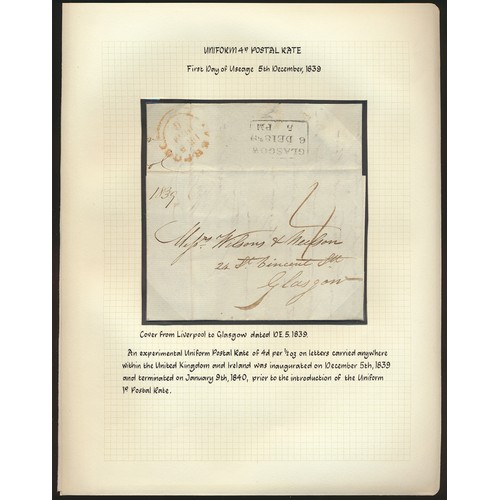 UNIFORM 4ᴰ POSTAL RATE
First Day of Useage 5th December, 1839
LIVERPOOL
GLASGOW
6 DE 1839
PM
1839
4
Messrs Wilsons & Neilson
24 St Vincent St
Glasgow
Cover from Liverpool to Glasgow dated DE.5.1839.
An experimental Uniform Postal Rate of 4d per ½oz on letters carried anywhere
within the United Kingdom and Ireland was inaugurated on December 5th, 1839
and terminated on January 9th, 1840, prior to the introduction of the Uniform
1ᴰ Postal Rate.